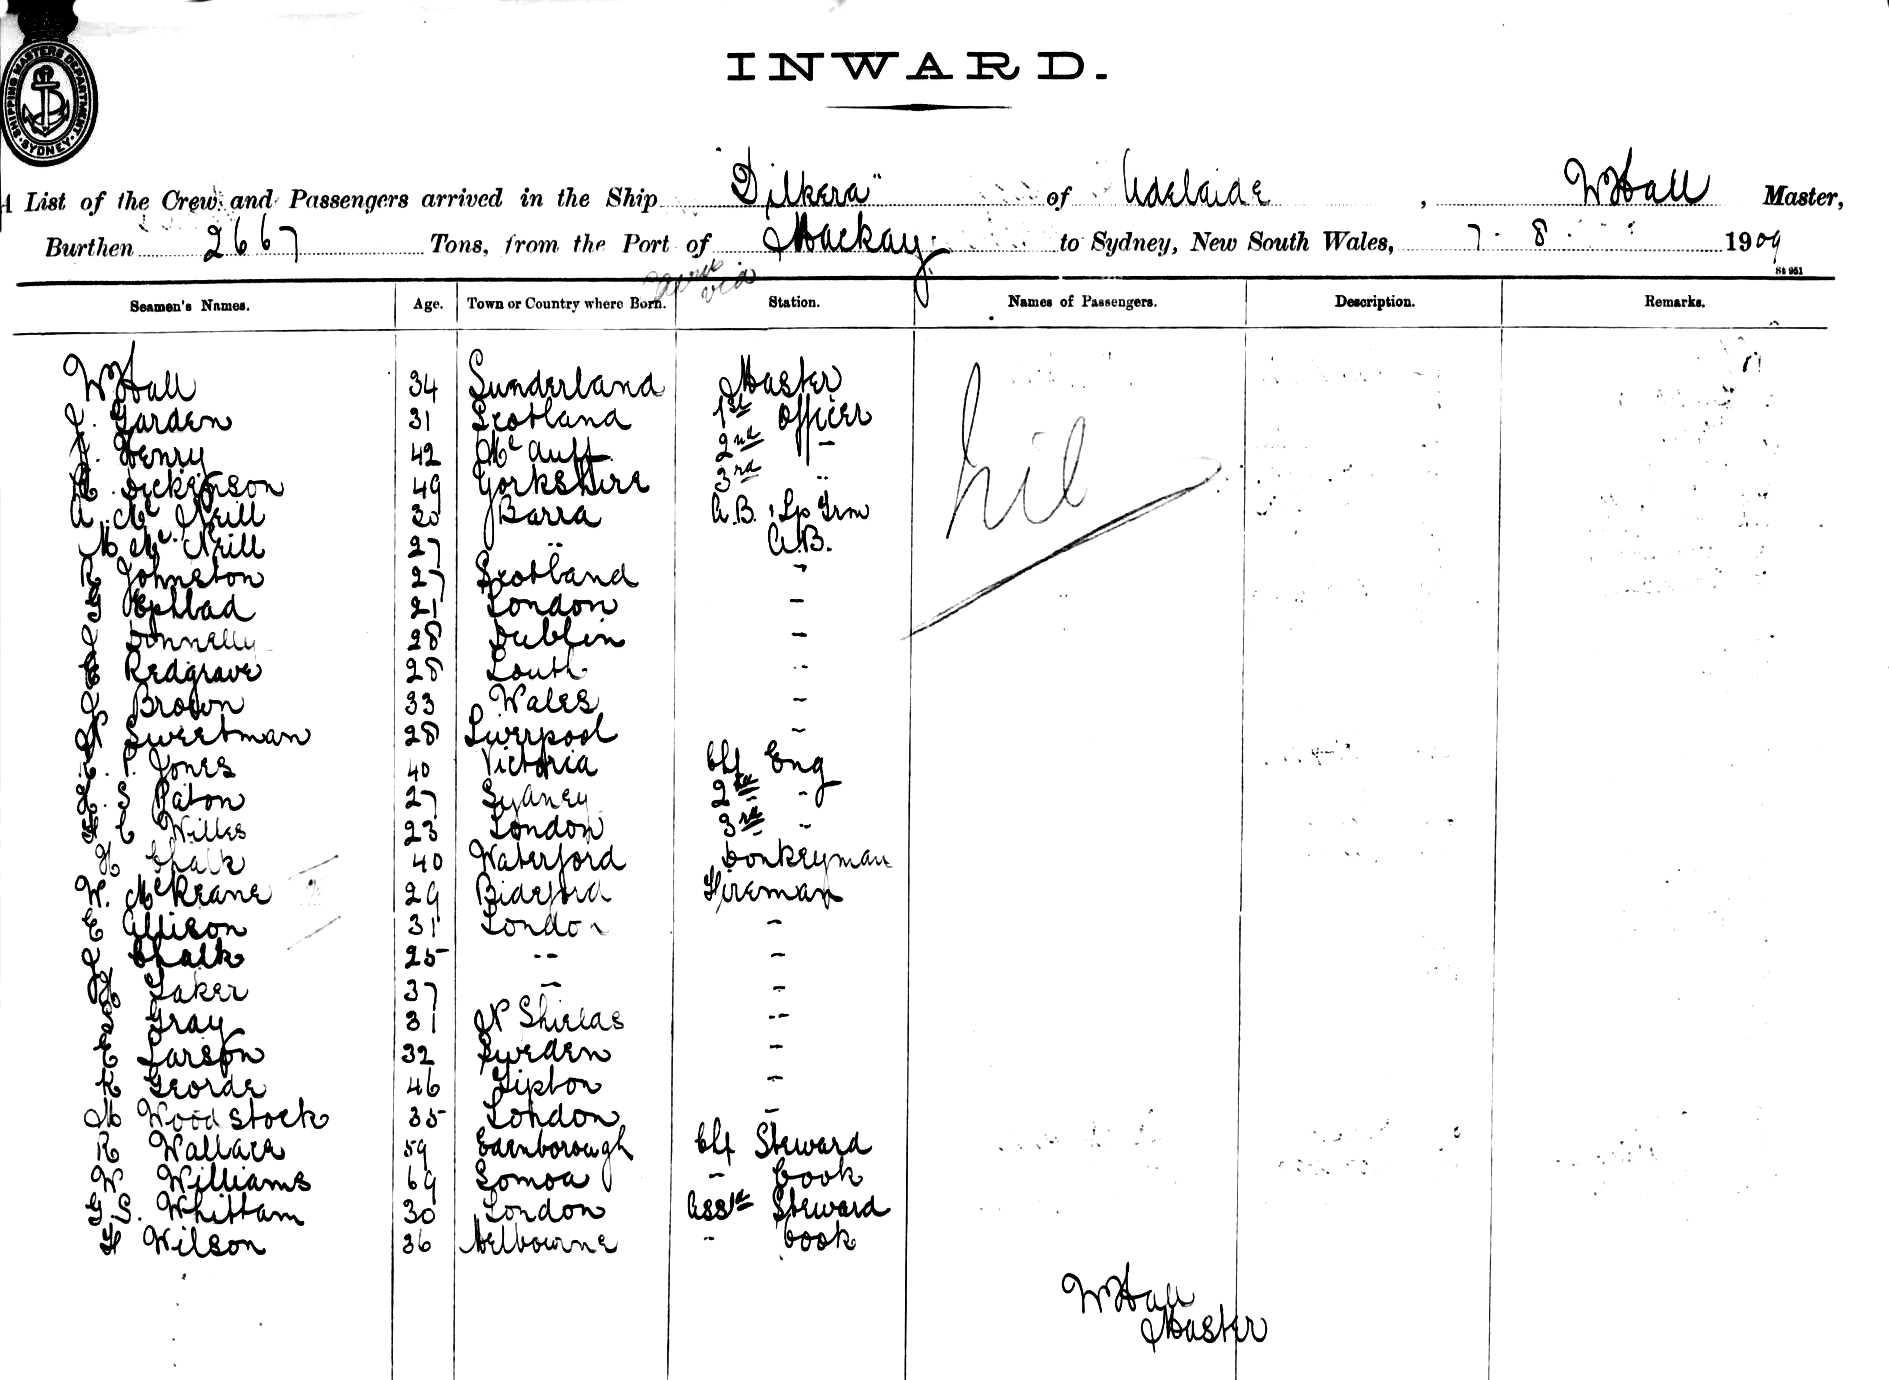 SHIPPING MASTERS DEPARTMENT SYDNEY
INWARD.
A List of the Crew and Passengers arrived in the Ship "Dilkera" of Adelaide, W Hall Master,
Burthen 2667 Tons, from the Port of Mackay to Sydney, New South Wales, 7 - 8 1909
via
St 951
Seamen's Names. Age. Town or Country where Born. Station. Names of Passengers. Description. Remarks.
W Hall 34 Sunderland Master
J. Garden 31 Scotland 1st Officer
J. Henry 42 2nd –
Dickinson 49 Yorkshire 3rd "
A. Mc Neill 30 Barra A.B. & Lp Trm
M Mc Neill 27 " A.B.
R Johnston 27 Scotland "
G 21 London –
J Donnelly 28 Dublin –
E Redgrave 28 Louth "
J Brown 33 Wales –
N Sweetman 28 Liverpool –
E. P. Jones 40 Victoria Chf Eng
S Paton 27 Sydney 2nd "
C Willes 23 London 3rd "
H Chalk 40 Waterford Donkeyman
W. McKeane 29 Bideford Fireman
E Allison 31 London –
J Chalk 25 -- –
H Laker 37 – –
Gray 31 N Shields --
E Larson 32 Sweden –
K George 46 Tipton –
M Woodstock 35 London –
R Wallace 59 Chf Steward
W Williams 69 Somoa – Cook
G. S. Whittam 30 London Asst Steward
H Wilson 36 Melbourne - Cook
nil
W Hall
Master